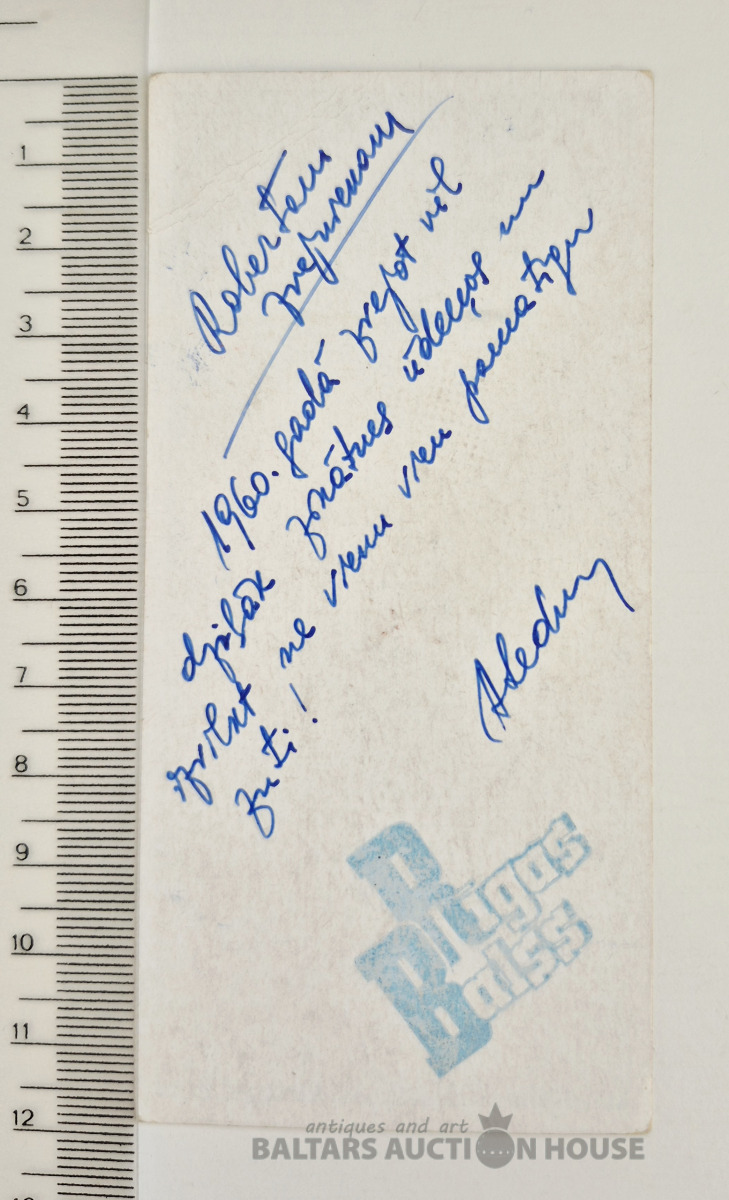 Robertam
zvejniekam
1960. gadā zvejot vēl
dziļāk zinātnes ūdeņos un
izvilkt ne vienu vien pamatīgu
zuti!
Rīgas
Balss
antiques and art
BALTARS AUCTION HOUSE
1
2
3
4
5
6
7
8
9
10
11
12